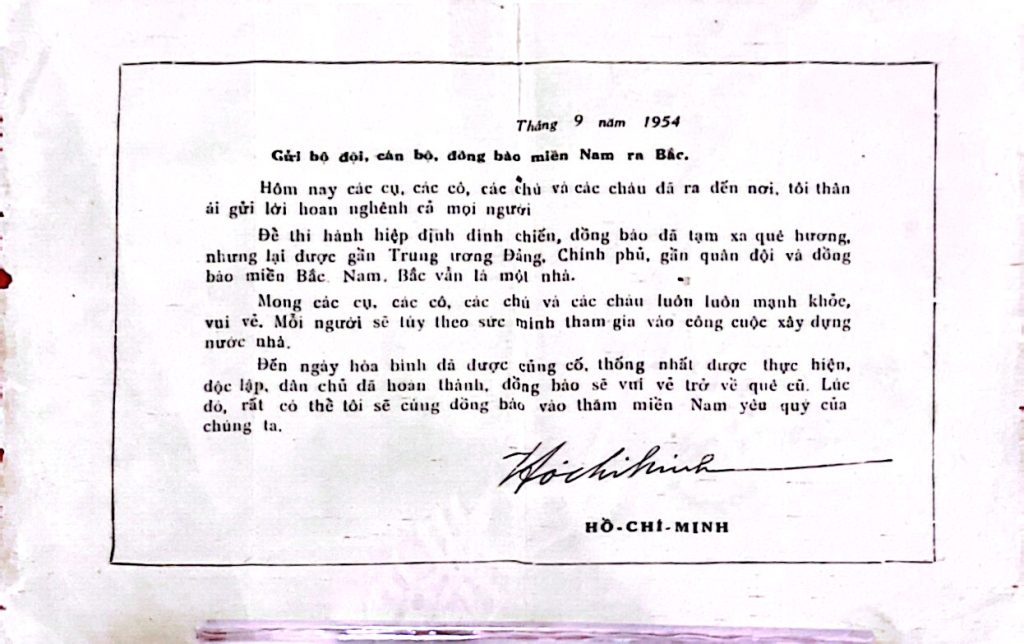 Tháng 9 năm 1954
Gửi bộ đội, cán bộ, đồng bào miền Nam ra Bắc.
Hôm nay các cụ, các cô, các chú và các cháu đã ra đến nơi, tôi thân
ái gửi lời hoan nghênh cả mọi người
Để thi hành hiệp định đình chiến, đồng bào đã tạm xa quê hương,
nhưng lại được gần Trung ương Đảng, Chính phủ, gần quân đội và đồng
bào miền Bắc. Nam, Bắc vẫn là một nhà.
Mong các cụ, các cô, các chú và các cháu luôn luôn mạnh khỏe,
vui vẻ. Mỗi người sẽ tùy theo sức mình tham gia vào công cuộc xây dựng
nước nhà.
Đến ngày hòa bình đã được củng cố, thống nhất được thực hiện,
độc lập, dân chủ đã hoàn thành, đồng bào sẽ vui vẻ trở về quê cũ. Lúc
đó, rất có thể tôi sẽ cùng đồng bào vào thăm miền Nam yêu quý của
chúng ta.
Hồ Chí Minh
HỒ-CHÍ-MINH